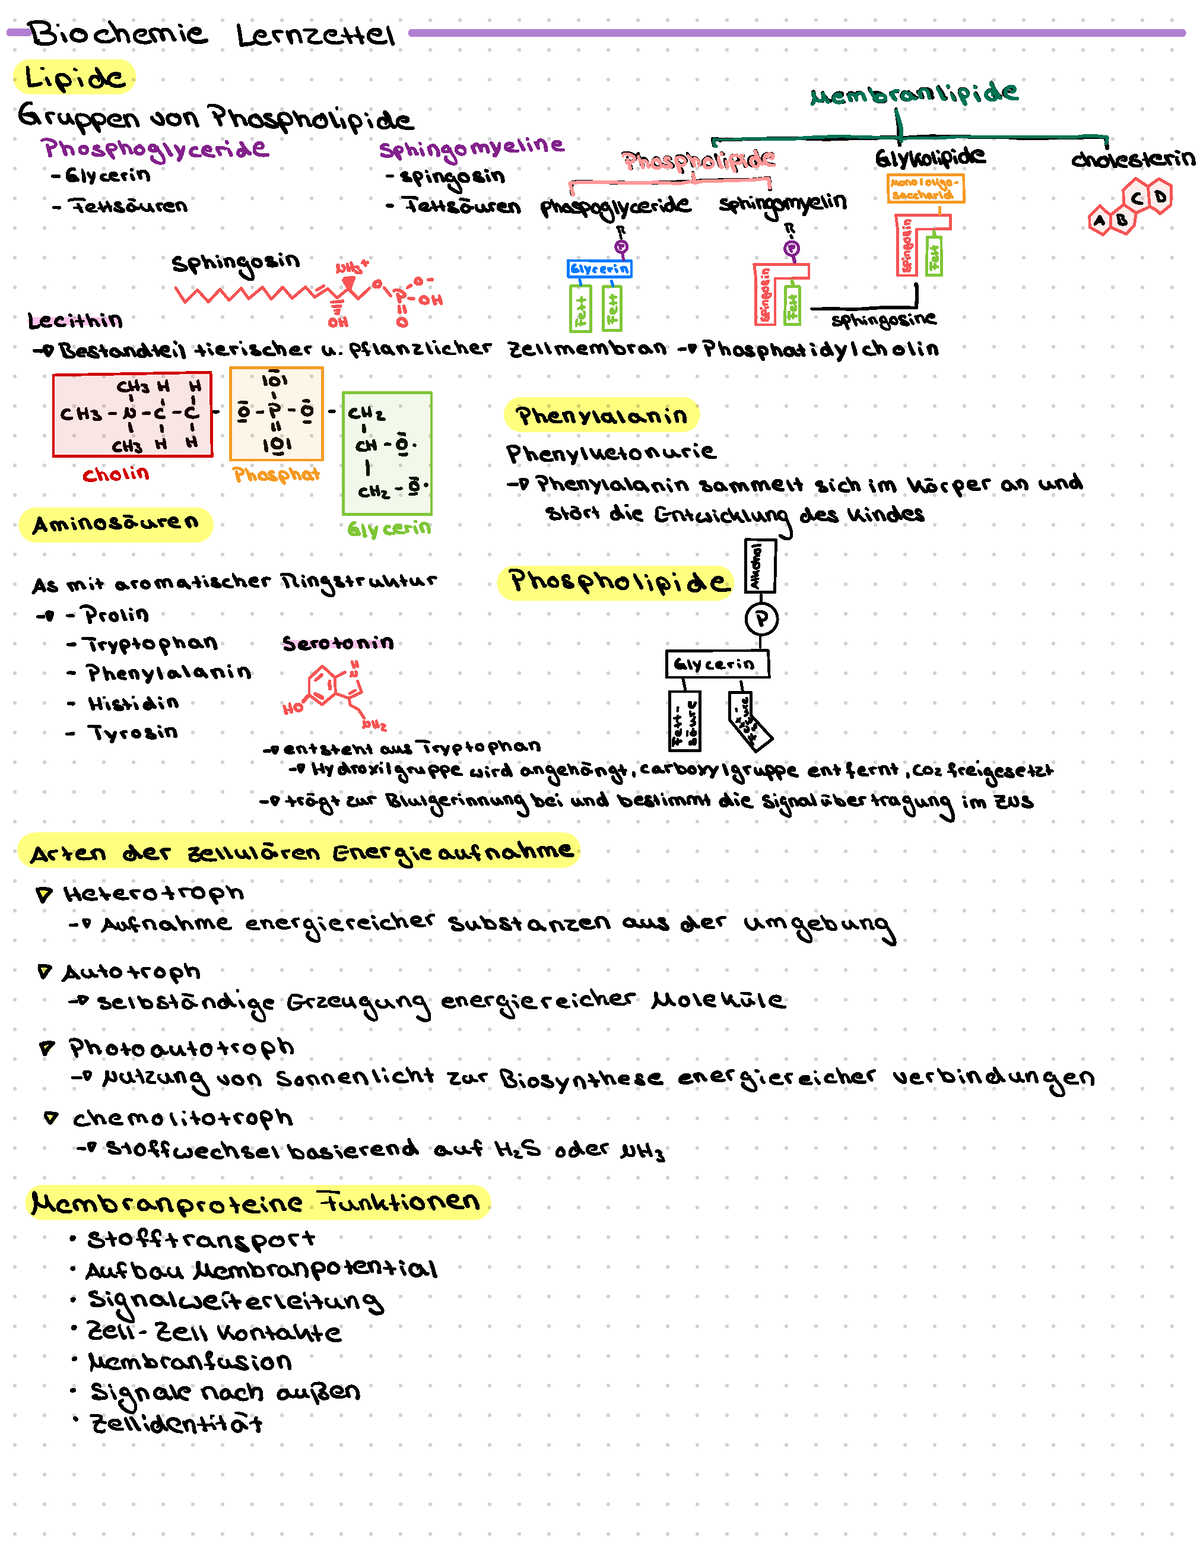 Biochemie Lernzettel
Lipide
Gruppen von Phospholipide
Phosphoglyceride
- Glycerin
- Fettsäuren
Sphingomyeline
- Spingosin
- Fettsäuren
Membranlipide
Phospholipide
Glykolipide
Cholesterin
Phospoglyceride
Sphingomyelin
Mono/oligo-
saccharid
A B C D
R
P
Glycerin
Fett
Fett
R
P
Spingosin
Fett
Spingosin
Fett
Sphingosine
Sphingosin
NH3+
O
O-
P
OH
OH
O
Lecithin
→ Bestandteil tierischer u. pflanzlicher Zellmembran → Phosphatidylcholin
CH3 H H
CH3 - N - C - C - O - P - O - CH2
CH3 H H
|O|
|O|
CH - O
CH2 - O
Cholin
Phosphat
Glycerin
Phenylalanin
Phenylketonurie
→ Phenylalanin sammelt sich im Körper an und
stört die Entwicklung des Kindes
Aminosäuren
As mit aromatischer Ringstruktur
→ - Prolin
- Tryptophan
- Phenylalanin
- Histidin
- Tyrosin
Serotonin
H
N
HO
NH2
→ entsteht aus Tryptophan
→ Hydroxilgruppe wird angehängt, carboxylgruppe entfernt, CO2 freigesetzt
→ trägt zur Blutgerinnung bei und bestimmt die Signalübertragung im ZNS
Phospholipide
Alkohol
P
Glycerin
Fett-
säure
Fett-
säure
Arten der zellulären Energieaufnahme
Heterotroph
→ Aufnahme energiereicher Substanzen aus der Umgebung
Autotroph
→ selbständige Erzeugung energiereicher Moleküle
Photoautotroph
→ Nutzung von Sonnenlicht zur Biosynthese energiereicher Verbindungen
Chemolitotroph
→ Stoffwechsel basierend auf H2S oder NH3
Membranproteine Funktionen
• Stofftransport
• Aufbau Membranpotential
• Signalweiterleitung
• Zell-Zell Kontakte
• Membranfusion
• Signale nach außen
• Zellidentität